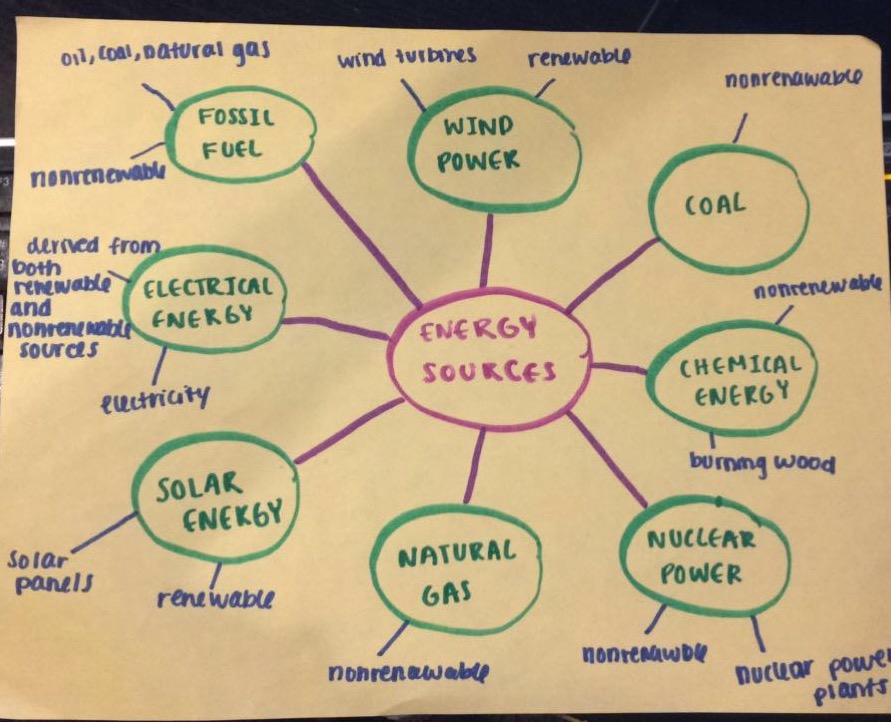 oil, coal, natural gas
FOSSIL
FUEL
nonrenewable
wind turbines
renewable
WIND
POWER
nonrenawable
COAL
derived from
both
renewable
and
nonrenewable
sources
ELECTRICAL
ENERGY
electricity
ENERGY
SOURCES
nonrenewable
CHEMICAL
ENERGY
burning wood
SOLAR
ENERGY
solar
panels
renewable
NATURAL
GAS
nonrenawable
NUCLEAR
POWER
nonrenawble
nuclear power
plants